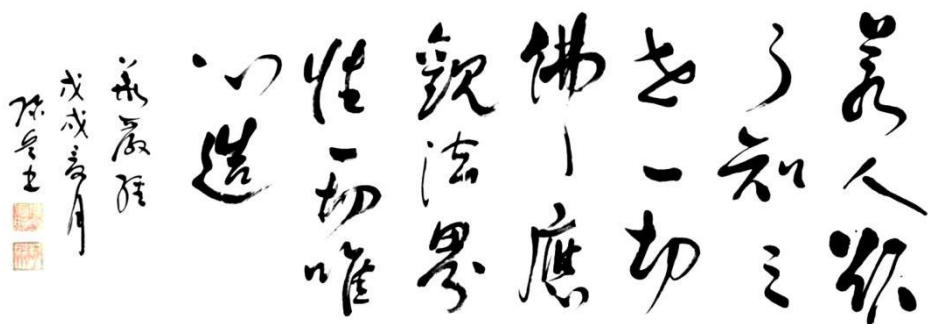 若人欲
了知三
世一切
佛應
觀法界
性一切唯
心造
華嚴經
戊戌夏月
陳